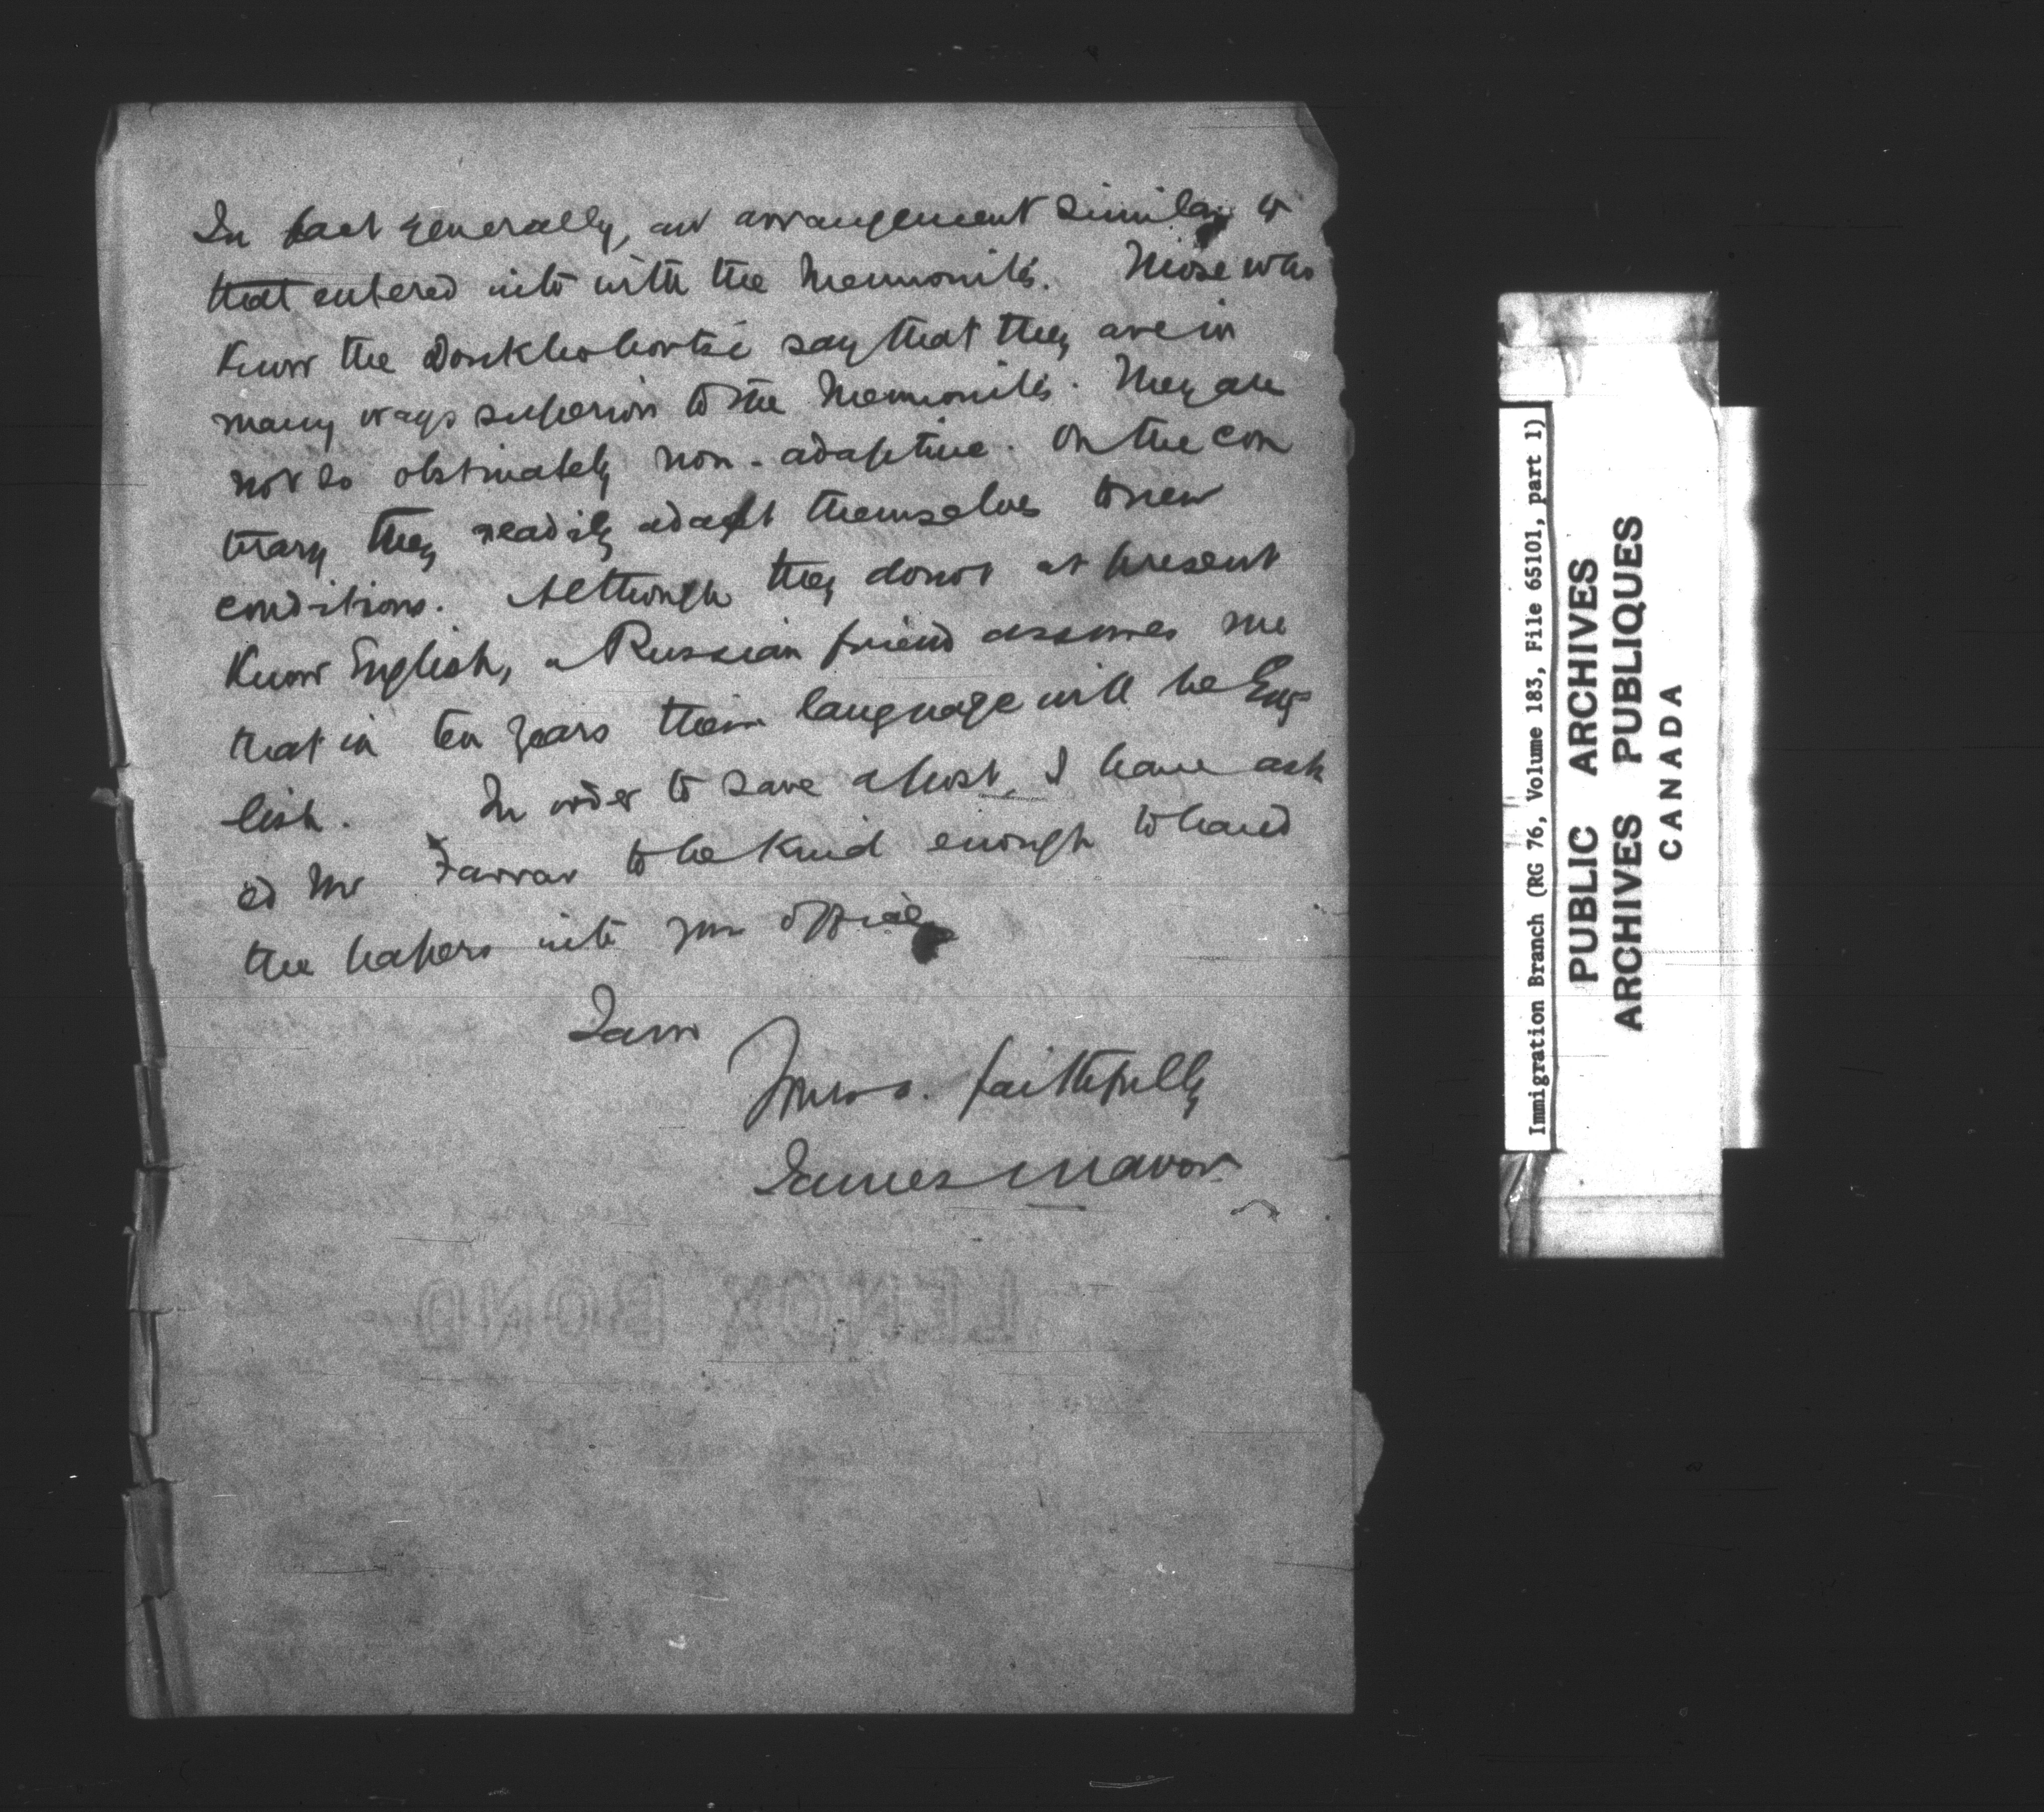 In fact generally, an arrangement similar to
that entered into with the Mennonites. Those who
know the Doukhobortsi say that they are in
many ways superior to the Mennonites. They are
not so obstinately non-adaptive. On the con
trary they readily adapt themselves to new
conditions. Although they do not at present
know English, a Russian friend assures me
that in ten years their language will be Eng-
lish. In order to save a post, I have ask
ed Mr Farrar to be kind enough to hand
the papers into your office
I am
Yours faithfully
James Mavor
LENOX BOND
Immigration Branch (RG 76, Volume 183, File 65101, part 1)
PUBLIC ARCHIVES
ARCHIVES PUBLIQUES
CANADA